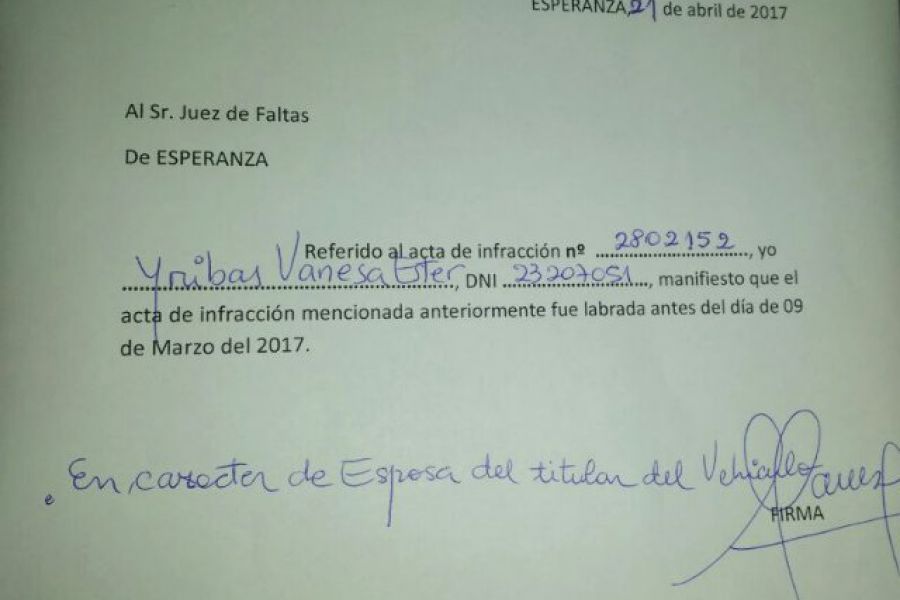 ESPERANZA, 21 de abril de 2017
Al Sr. Juez de Faltas
De ESPERANZA
Referido al acta de infracción nº 2802152, yo
Yribas Vanesa Ester, DNI 23207051, manifiesto que el
acta de infracción mencionada anteriormente fue labrada antes del día de 09
de Marzo del 2017.
En caracter de Esposa del titular del Vehiculo
FIRMA